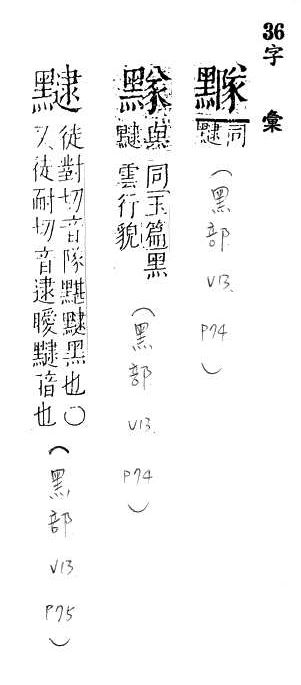 36字 彙
同
(黑部 V13. P74)
與同玉篇黑
雲行貌
(黑部 V13. P74)
徒對切音隊黮黑也○
又徒耐切音逮曖暗也
(黑部 V13 P75)